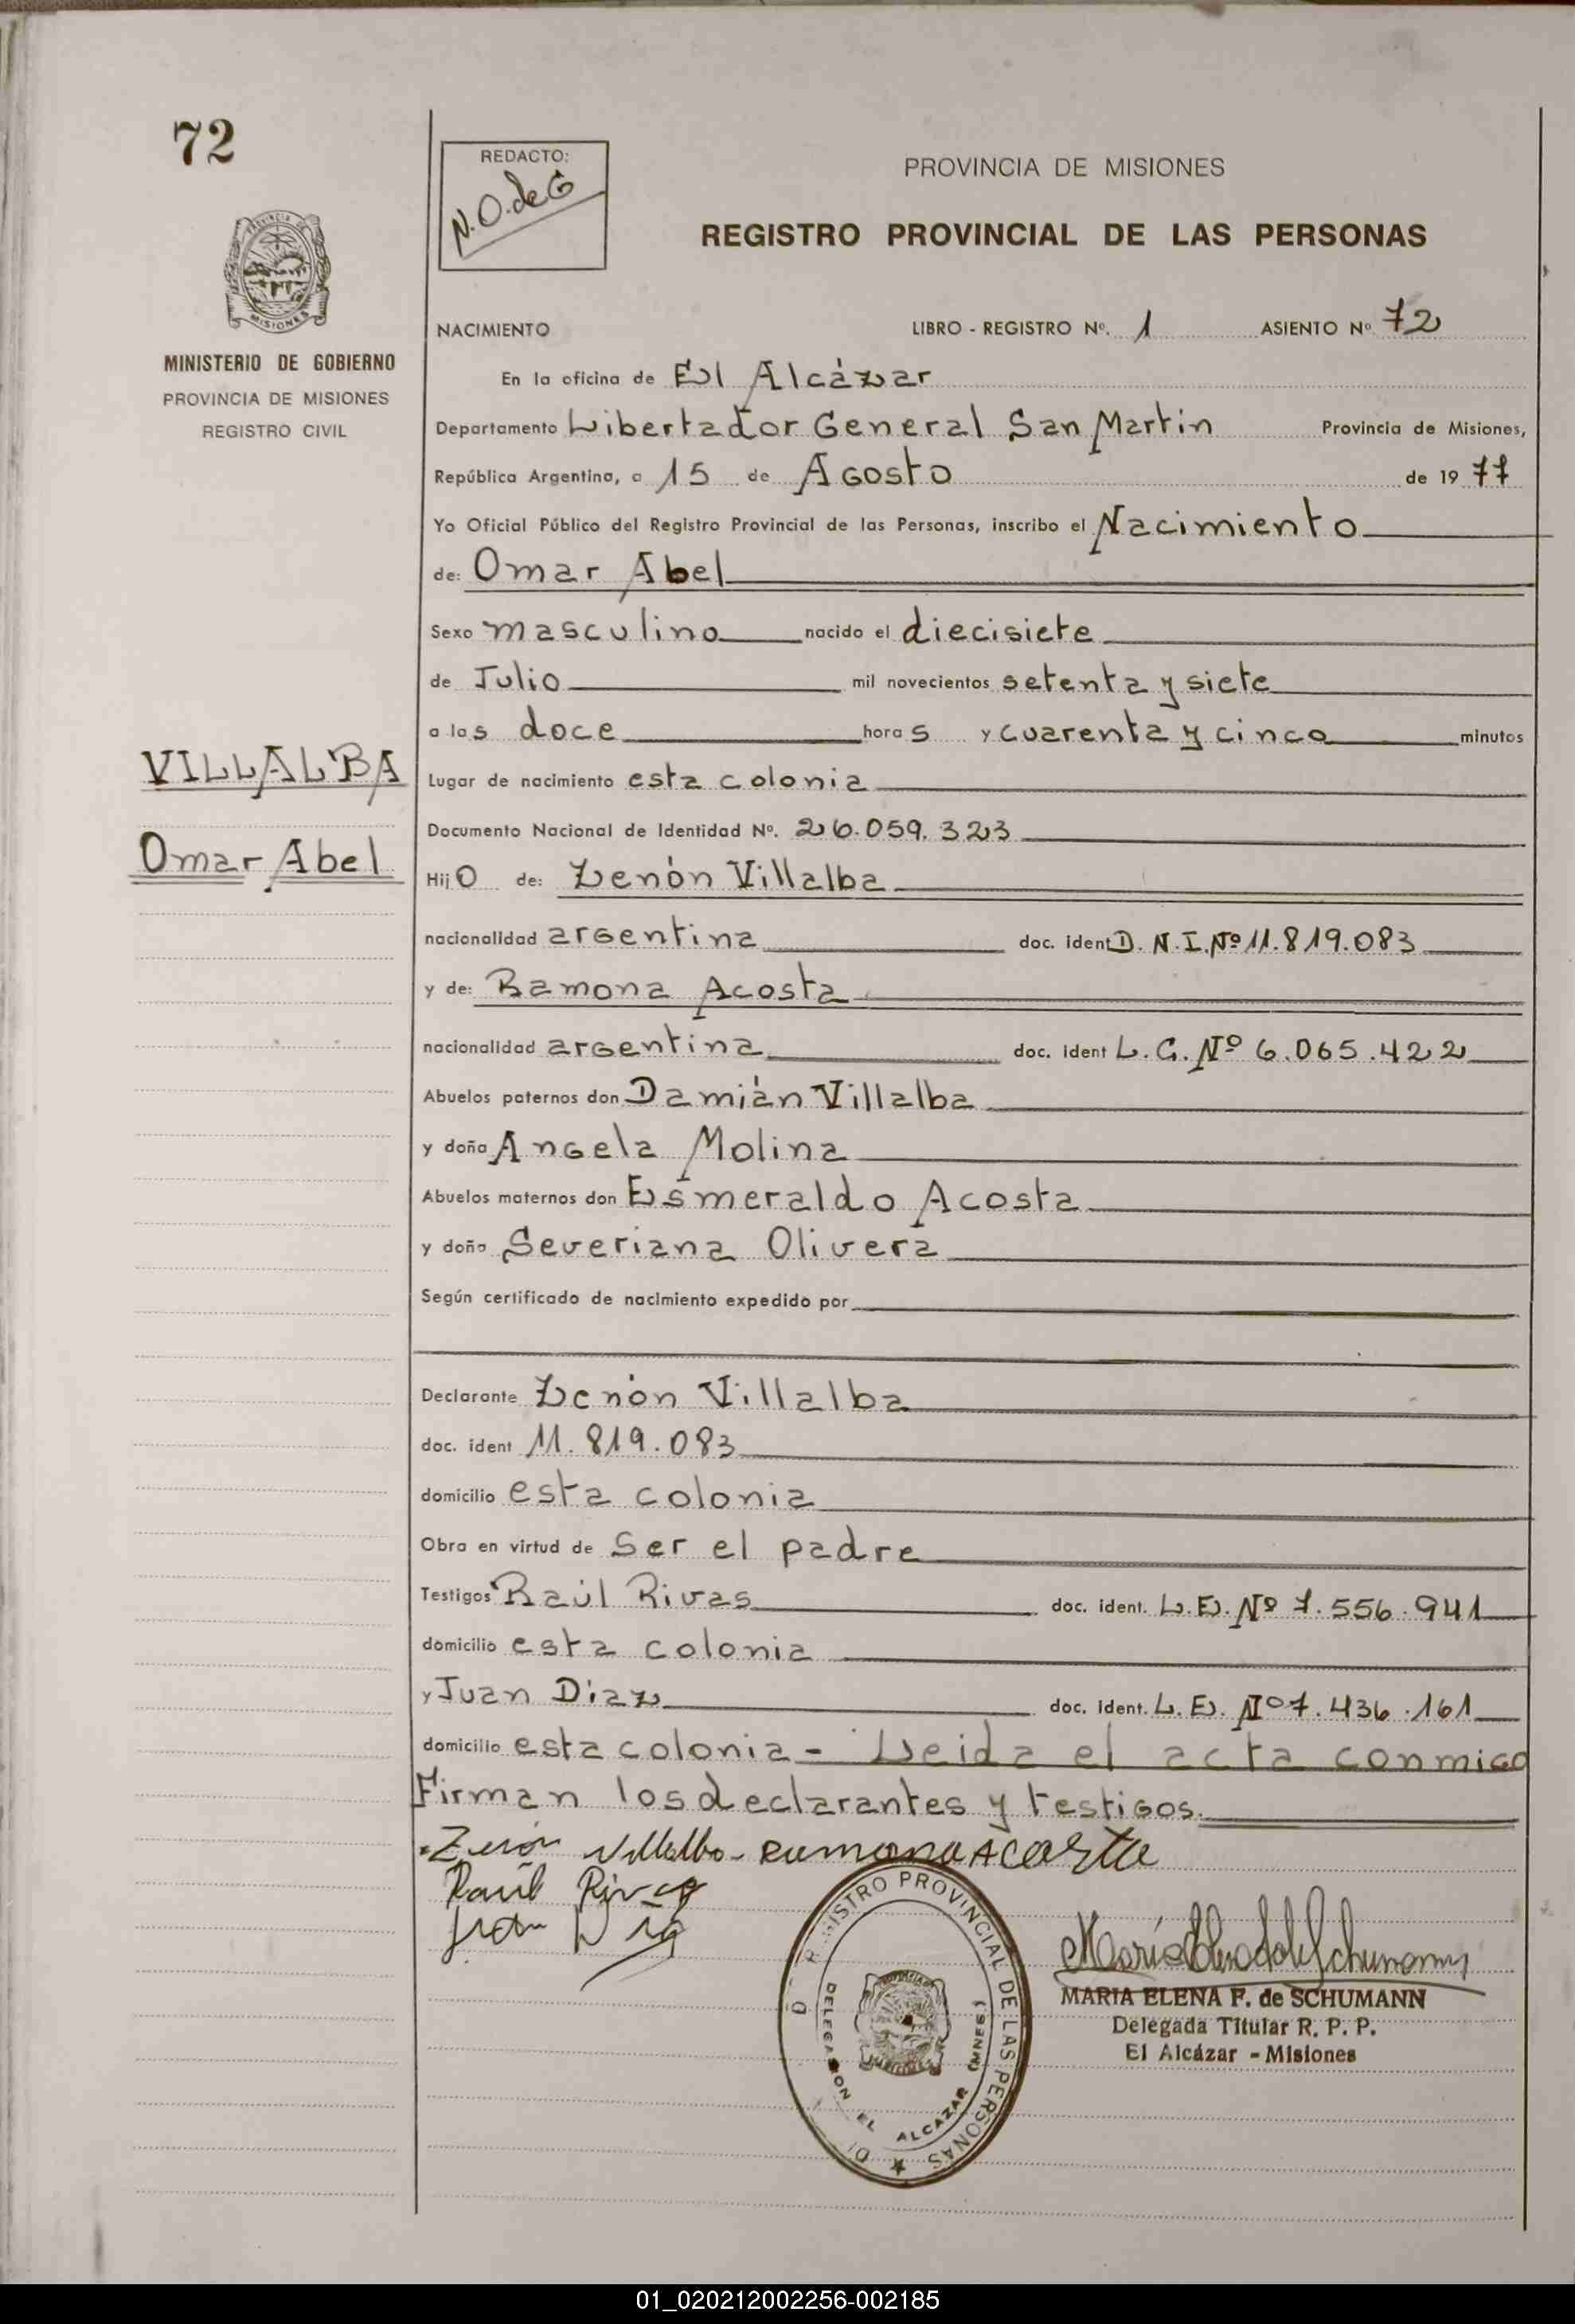 72
PROVINCIA DE
MISIONES
MINISTERIO DE GOBIERNO
PROVINCIA DE MISIONES
REGISTRO CIVIL
VILLALBA
Omar Abel
REDACTO:
N.O.deG
PROVINCIA DE MISIONES
REGISTRO PROVINCIAL DE LAS PERSONAS
NACIMIENTO LIBRO - REGISTRO Nº. 1 ASIENTO Nº 72
En la oficina de El Alcázar
Departamento Libertador General San Martín Provincia de Misiones,
República Argentina, a 15 de Agosto de 1977
Yo Oficial Público del Registro Provincial de las Personas, inscribo el Nacimiento
de: Omar Abel
Sexo masculino nacido el diecisiete
de Julio mil novecientos setenta y siete
a las doce horas y cuarenta y cinco minutos
Lugar de nacimiento esta colonia
Documento Nacional de Identidad Nº. 26.059.323
Hijo de: Zenón Villalba
nacionalidad argentina doc. ident D.N.I.Nº 11.819.083
y de: Ramona Acosta
nacionalidad argentina doc. ident L.C. Nº 6.065.422
Abuelos paternos don Damián Villalba
y doña Angela Molina
Abuelos maternos don Esmeraldo Acosta
y doña Severiana Olivera
Según certificado de nacimiento expedido por
Declarante Zenón Villalba
doc. ident 11.819.083
domicilio esta colonia
Obra en virtud de Ser el padre
Testigos Raúl Rivas doc. ident. L.E. Nº 7.556.941
domicilio esta colonia
y Juan Díaz doc. ident. L.E. Nº 7.436.161
domicilio esta colonia - Leida el acta conmigo
Firman los declarantes y testigos.
Zenón Villalba - Ramona Acosta
Raúl Rivas
Juan Díaz
REGISTRO PROVINCIAL DE LAS PERSONAS
DELEGACION EL ALCAZAR (MNES.)
MARIA ELENA F. de SCHUMANN
Delegada Titular R. P. P.
El Alcázar - Misiones
01_020212002256-002185